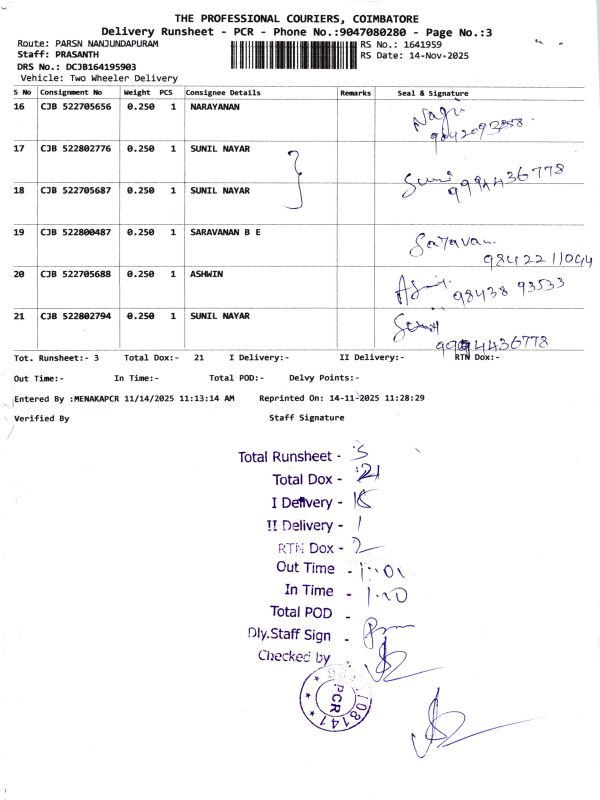 THE PROFESSIONAL COURIERS, COIMBATORE
Delivery Runsheet - PCR - Phone No.:9047080280 - Page No.:3
Route: PARSN NANJUNDAPURAM
RS No.: 1641959
Staff: PRASANTH
RS Date: 14-Nov-2025
DRS No.: DCJB164195903
Vehicle: Two Wheeler Delivery
S No Consignment No Weight PCS Consignee Details Remarks Seal & Signature
16 CJB 522705656 0.250 1 NARAYANAN
17 CJB 522802776 0.250 1 SUNIL NAYAR
18 CJB 522705687 0.250 1 SUNIL NAYAR
9994436778
19 CJB 522800487 0.250 1 SARAVANAN B E Saravan
9842211044
20 CJB 522705688 0.250 1 ASHWIN 98438 93533
21 CJB 522802794 0.250 1 SUNIL NAYAR
9994436778
Tot. Runsheet:- 3 Total Dox:- 21 I Delivery:- II Delivery:- RTN Dox:-
Out Time:- In Time:- Total POD:- Delvy Points:-
Entered By :MENAKAPCR 11/14/2025 11:13:14 AM Reprinted On: 14-11-2025 11:28:29
Verified By Staff Signature
Total Runsheet - 3
Total Dox - 21
I Delivery - 18
II Delivery - 1
RTN Dox - 2
Out Time - 1:01
In Time - 1:10
Total POD -
Dly.Staff Sign -
Checked by
PCR